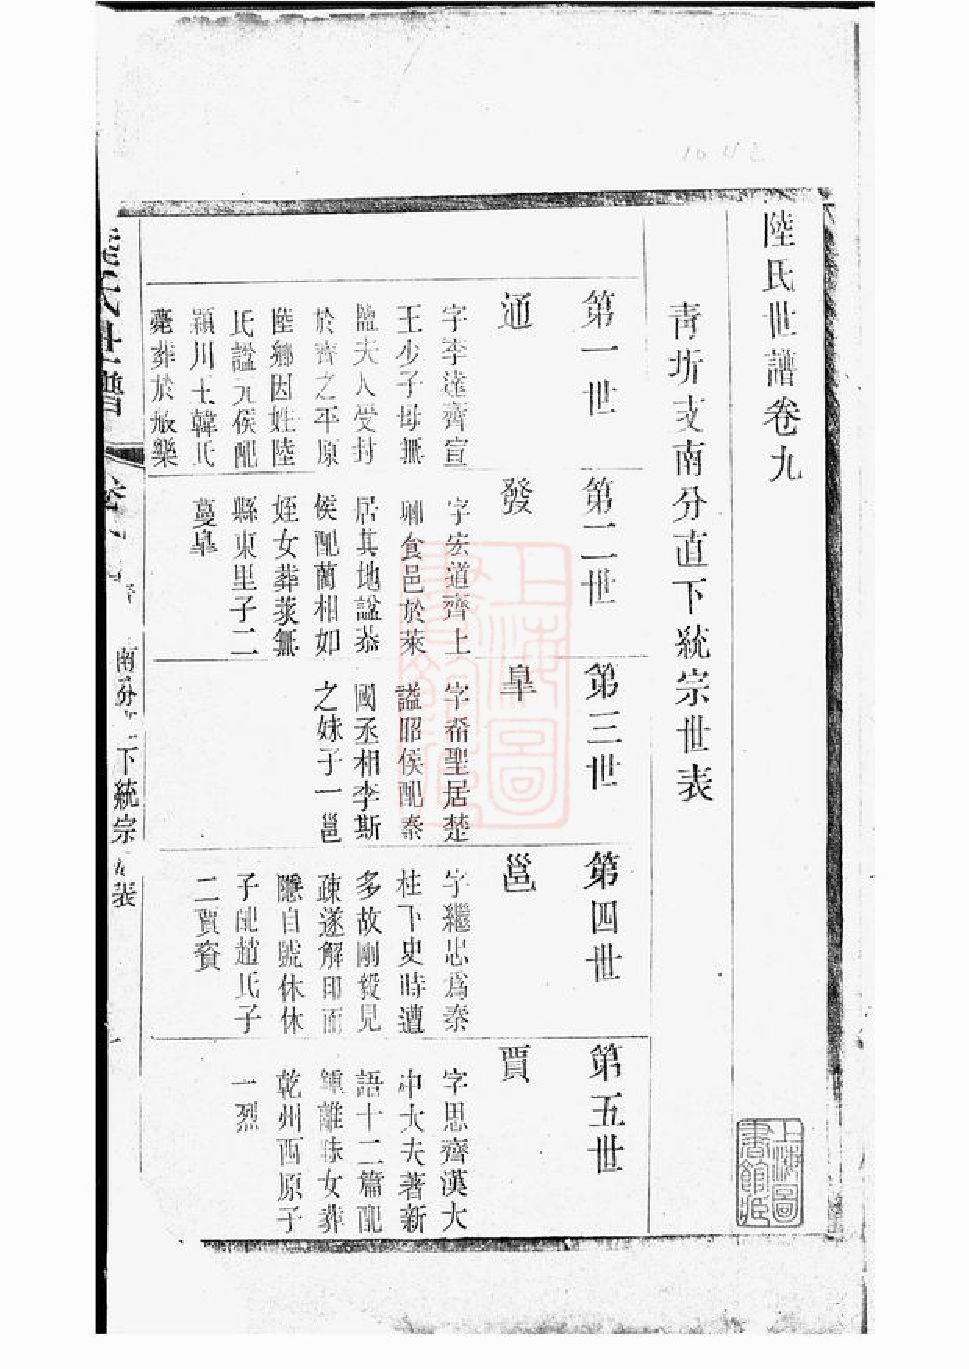 陸氏世譜卷九
青圻支南分直下統宗世表
第一世
通
字季達齊宣
王少子母無
鹽夫人受封
於齊之平原
陸鄉因姓陸
氏諡元侯配
潁川王韓氏
薨葬於般樂
第二世
發
字宏道齊上
卿食邑於萊
居其地諡恭
侯配藺相如
姪女葬萊無
縣東里子二
蔓皐
第三世
皐
字希聖居楚
諡昭侯配秦
國丞相李斯
之妹子一邕
第四世
邕
字繼忠爲秦
柱下史時遭
多故剛毅見
疎遂解印而
隱自號休休
子配趙氏子
二賈賚
第五世
賈
字思齊漢大
中大夫著新
語十二篇配
鍾離昧女葬
乾州西原子
一烈
氏世譜
南分
下統宗
表
上海圖
書館藏
1042